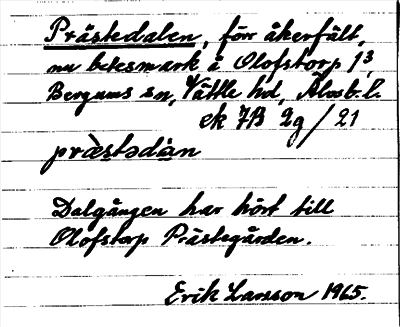 Prästedalen, förr åkerfält,
nu betesmark å Olofstorp 1³,
Bergums sn, Vättle hd, Älvsb. l.
ek 7B 2g / 21
prɛ̀stədàn
Dalgången har hört till
Olofstorp Prästegården.
Erik Larsson 1965.